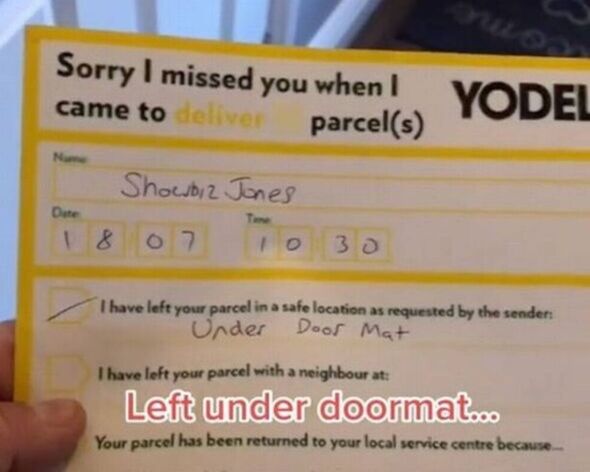 Sorry I missed you when I
came to deliver parcel(s)
YODEL
Name
Showbiz Jones
Date Time
18 07 10 30
I have left your parcel in a safe location as requested by the sender:
Under Door Mat
I have left your parcel with a neighbour at:
Left under doormat...
Your parcel has been returned to your local service centre because...